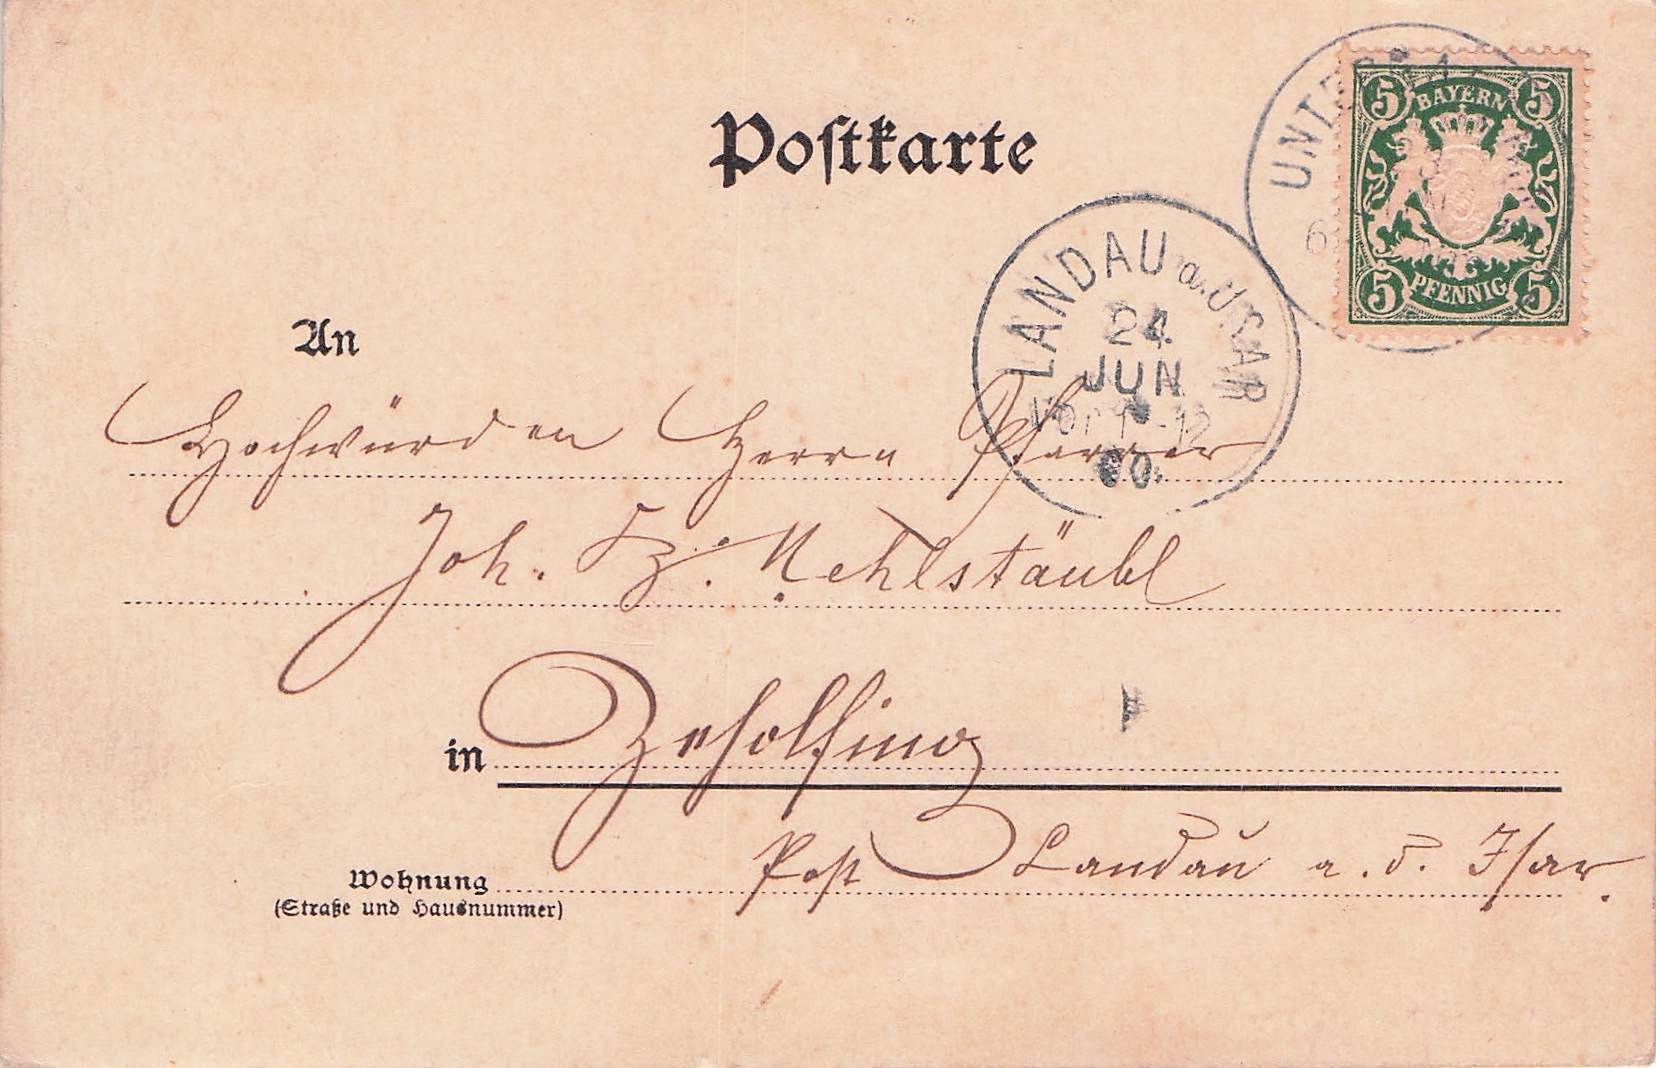 Postkarte
5 BAYERN 5
5 PFENNIG 5
LANDAU a. ISAR
24
JUN
00.
An
Hochwürden Herrn Pfarrer
Joh. Ev. Mehlstäubl
in Zeholfing
Post Landau a. d. Isar.
Wohnung
(Straße und Hausnummer)